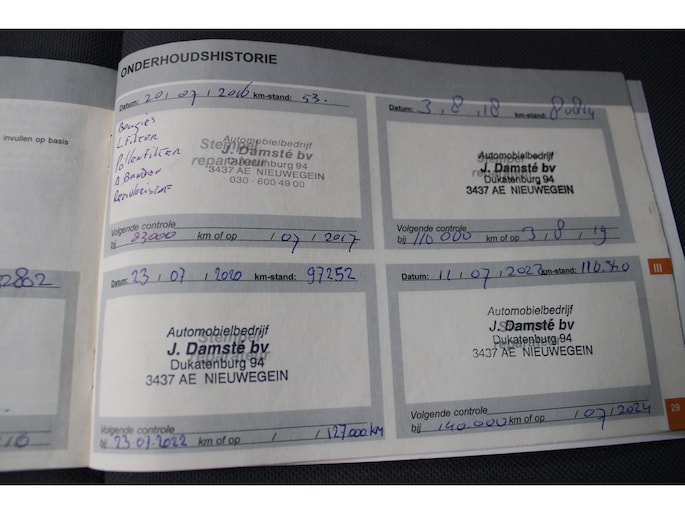 ONDERHOUDSHISTORIE
invullen op basis
Datum: 20 / 07 / 2016 km-stand: 53.
Bougies
L.filter
Pollenfilter
Stempel reparateur
Automobielbedrijf
J. Damsté bv
Dukatenburg 94
3437 AE NIEUWEGEIN
030 - 600 49 00
Volgende controle
bij 83000 km of op / 07 / 2017
Datum: 3, 8, 18 km-stand: 80814
Stempel reparateur
Automobielbedrijf
J. Damsté bv
Dukatenburg 94
3437 AE NIEUWEGEIN
Volgende controle
bij 110 000 km of op 3 / 8 / 19
2802
Datum: 23 / 07 / 2020 km-stand: 97252
Stempel reparateur
Automobielbedrijf
J. Damsté bv
Dukatenburg 94
3437 AE NIEUWEGEIN
Volgende controle
bij 23.07.2022 km of op / / 127.000 KM
Datum: 11 / 07 / 2022 km-stand:
Stempel reparateur
Automobielbedrijf
J. Damsté bv
Dukatenburg 94
3437 AE NIEUWEGEIN
Volgende controle
bij 140.000 km of op / 07 / 2024
III
29